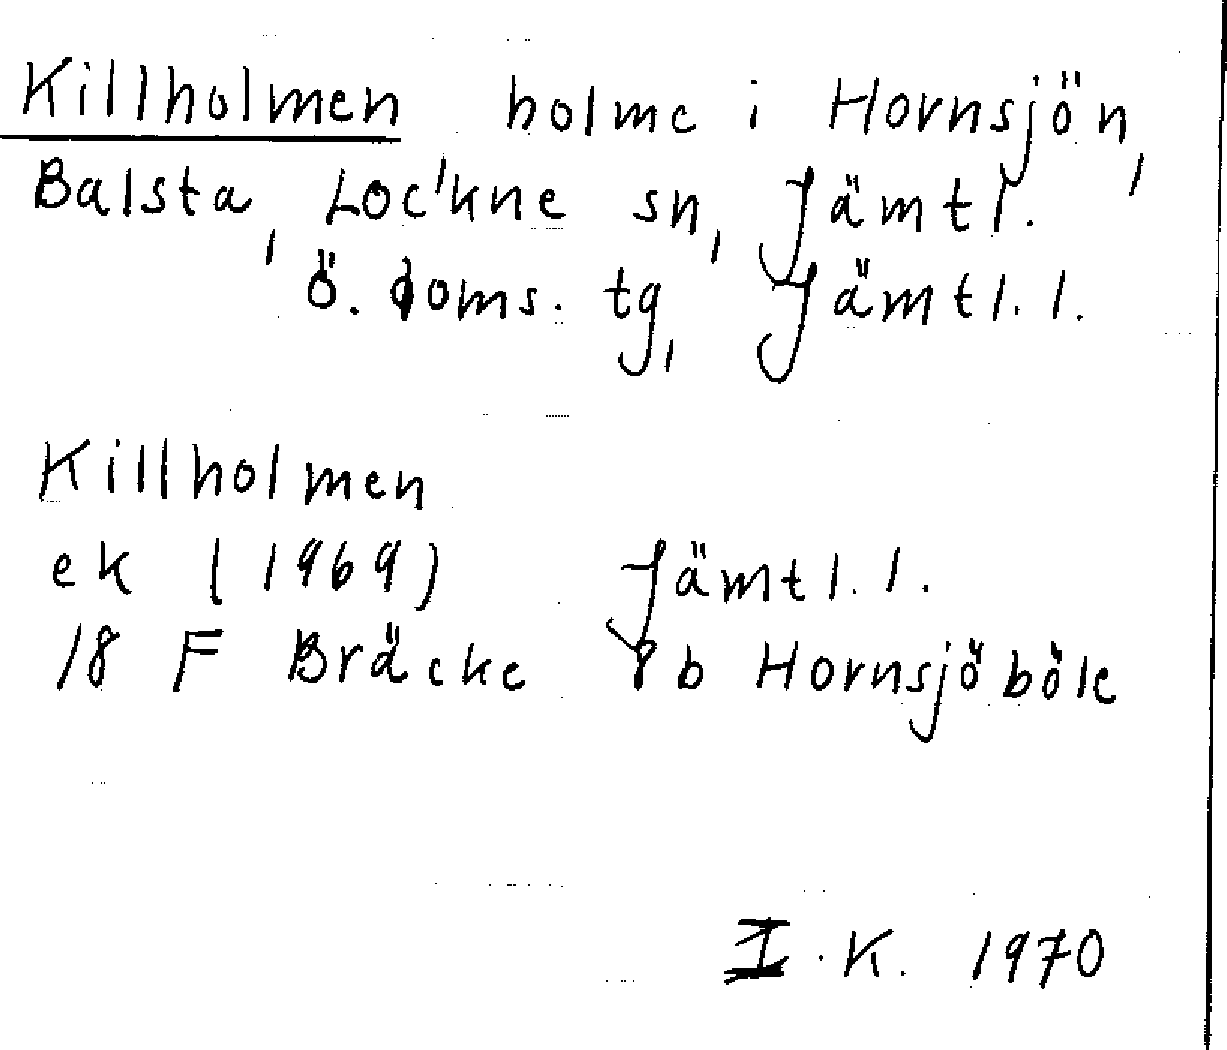 Killholmen holme i Hornsjön,
Balsta, Lockne sn, Jämtl.
ö. doms. tg, Jämtl. l.
Killholmen
ek (1969) Jämtl. l.
18 F Bräcke 8 b Hornsjöböle
I. K. 1970